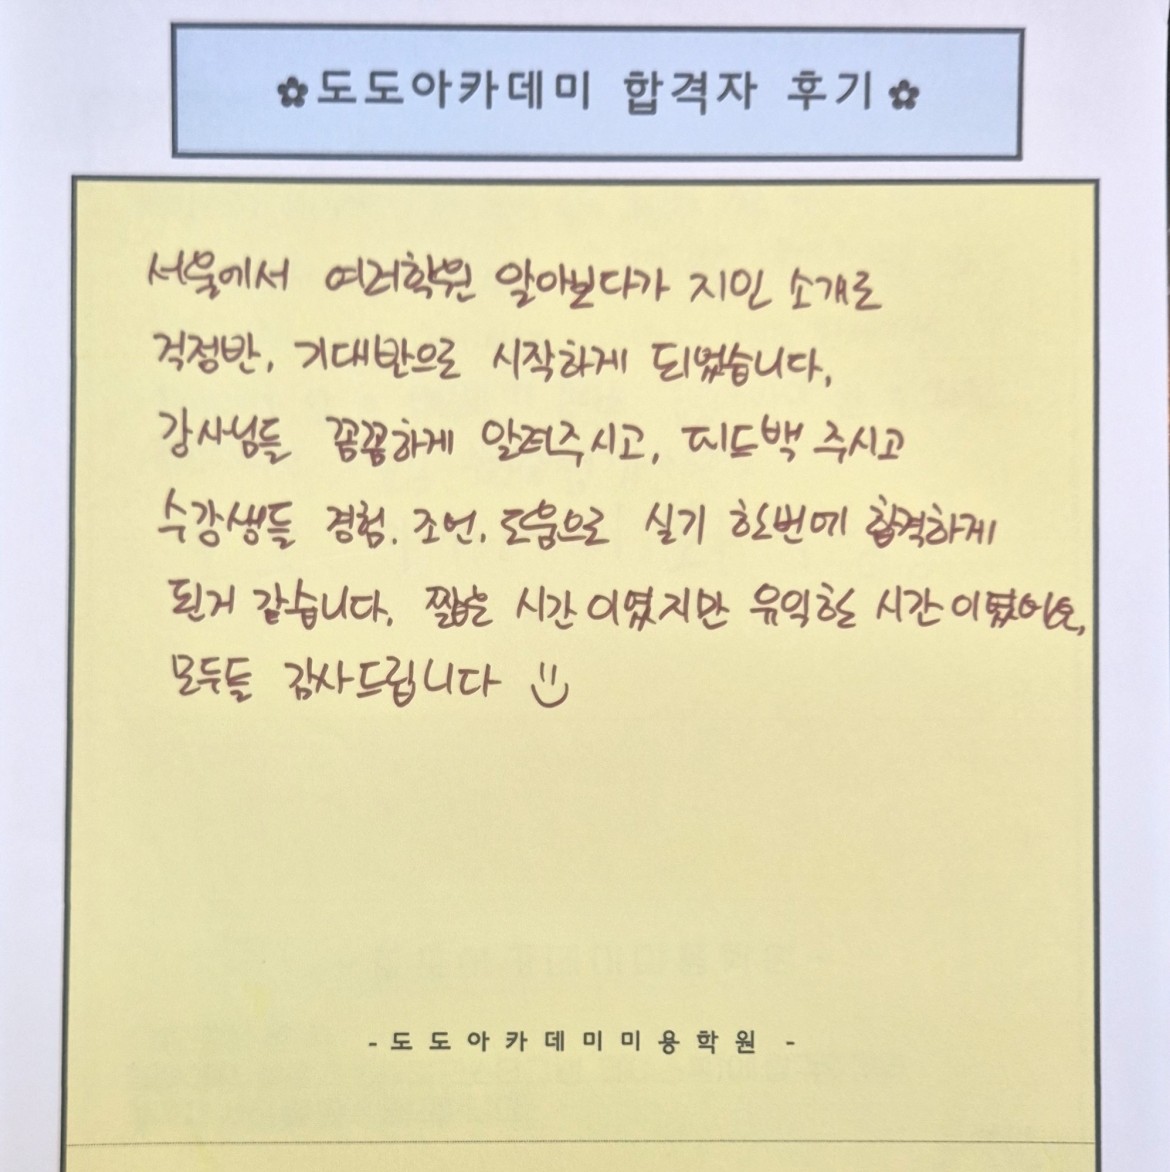 ✿도도아카데미 합격자 후기✿
서울에서 여러학원 알아보다가 지인 소개로
걱정반, 기대반으로 시작하게 되었습니다.
강사님들 꼼꼼하게 알려주시고, 피드백 주시고
수강생들 경험, 조언, 도움으로 실기 한번에 합격하게
된거 같습니다. 짧은 시간이였지만 유익한 시간이였어요,
모두들 감사드립니다
- 도도아카데미미용학원 -